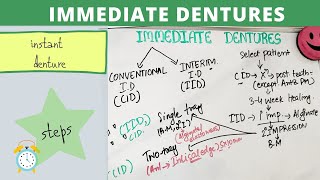 IMMEDIATE DENTURES
instant
denture
steps
IMMEDIATE DENTURES
CONVENTIONAL
I.D
(CID)
INTERIM
I.D
(IID)
Select patient
CID → Xⁿ post teeth
(except Ant & PM)
3-4 week healing
IID → 1° imp → Alginate
2° IMPRESSION
B.M
(IID,
CID)
Single tray
(CID)
Two-tray
(Ant →